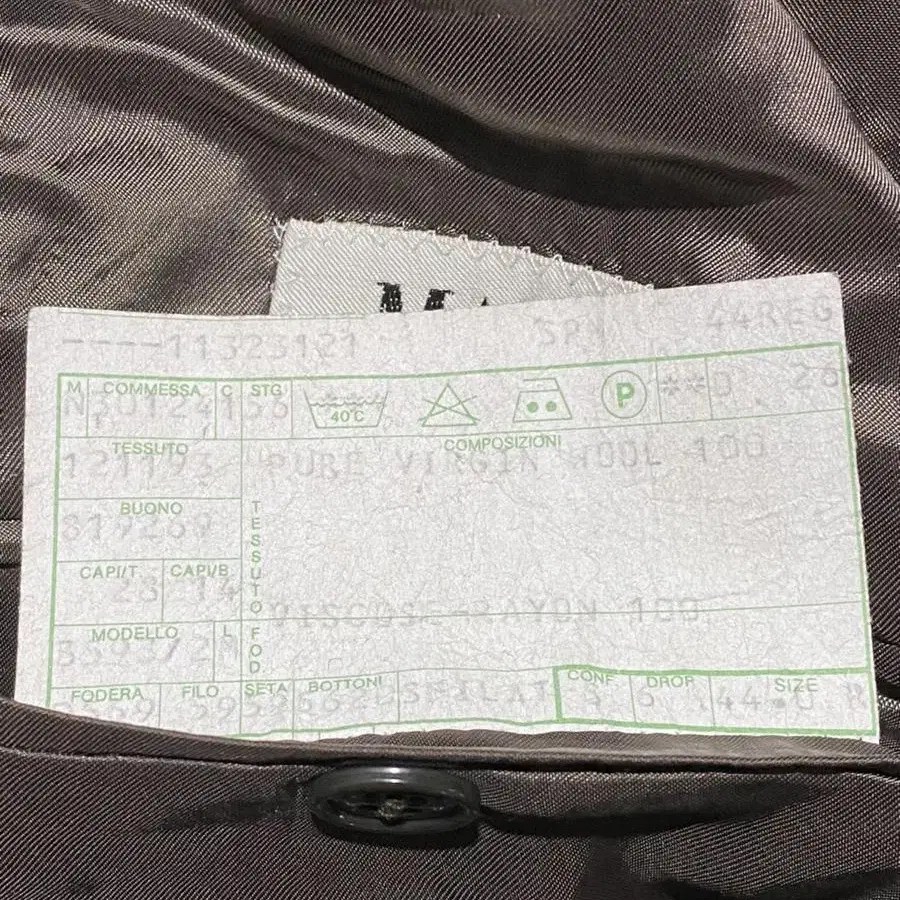 ----11323121 44REG
M COMMESSA C STG
40°C P **D 26
TESSUTO COMPOSIZIONI
121193 PURE VIRGIN WOOL 100
BUONO
819269
TESSUTO
CAPI/T CAPI/B
28 14
VISCOSE-RAYON 100
MODELLO L FOD.
FODERA FILO SETA BOTTONI CONF DROP SIZE
SFILAT 6 44.0 R